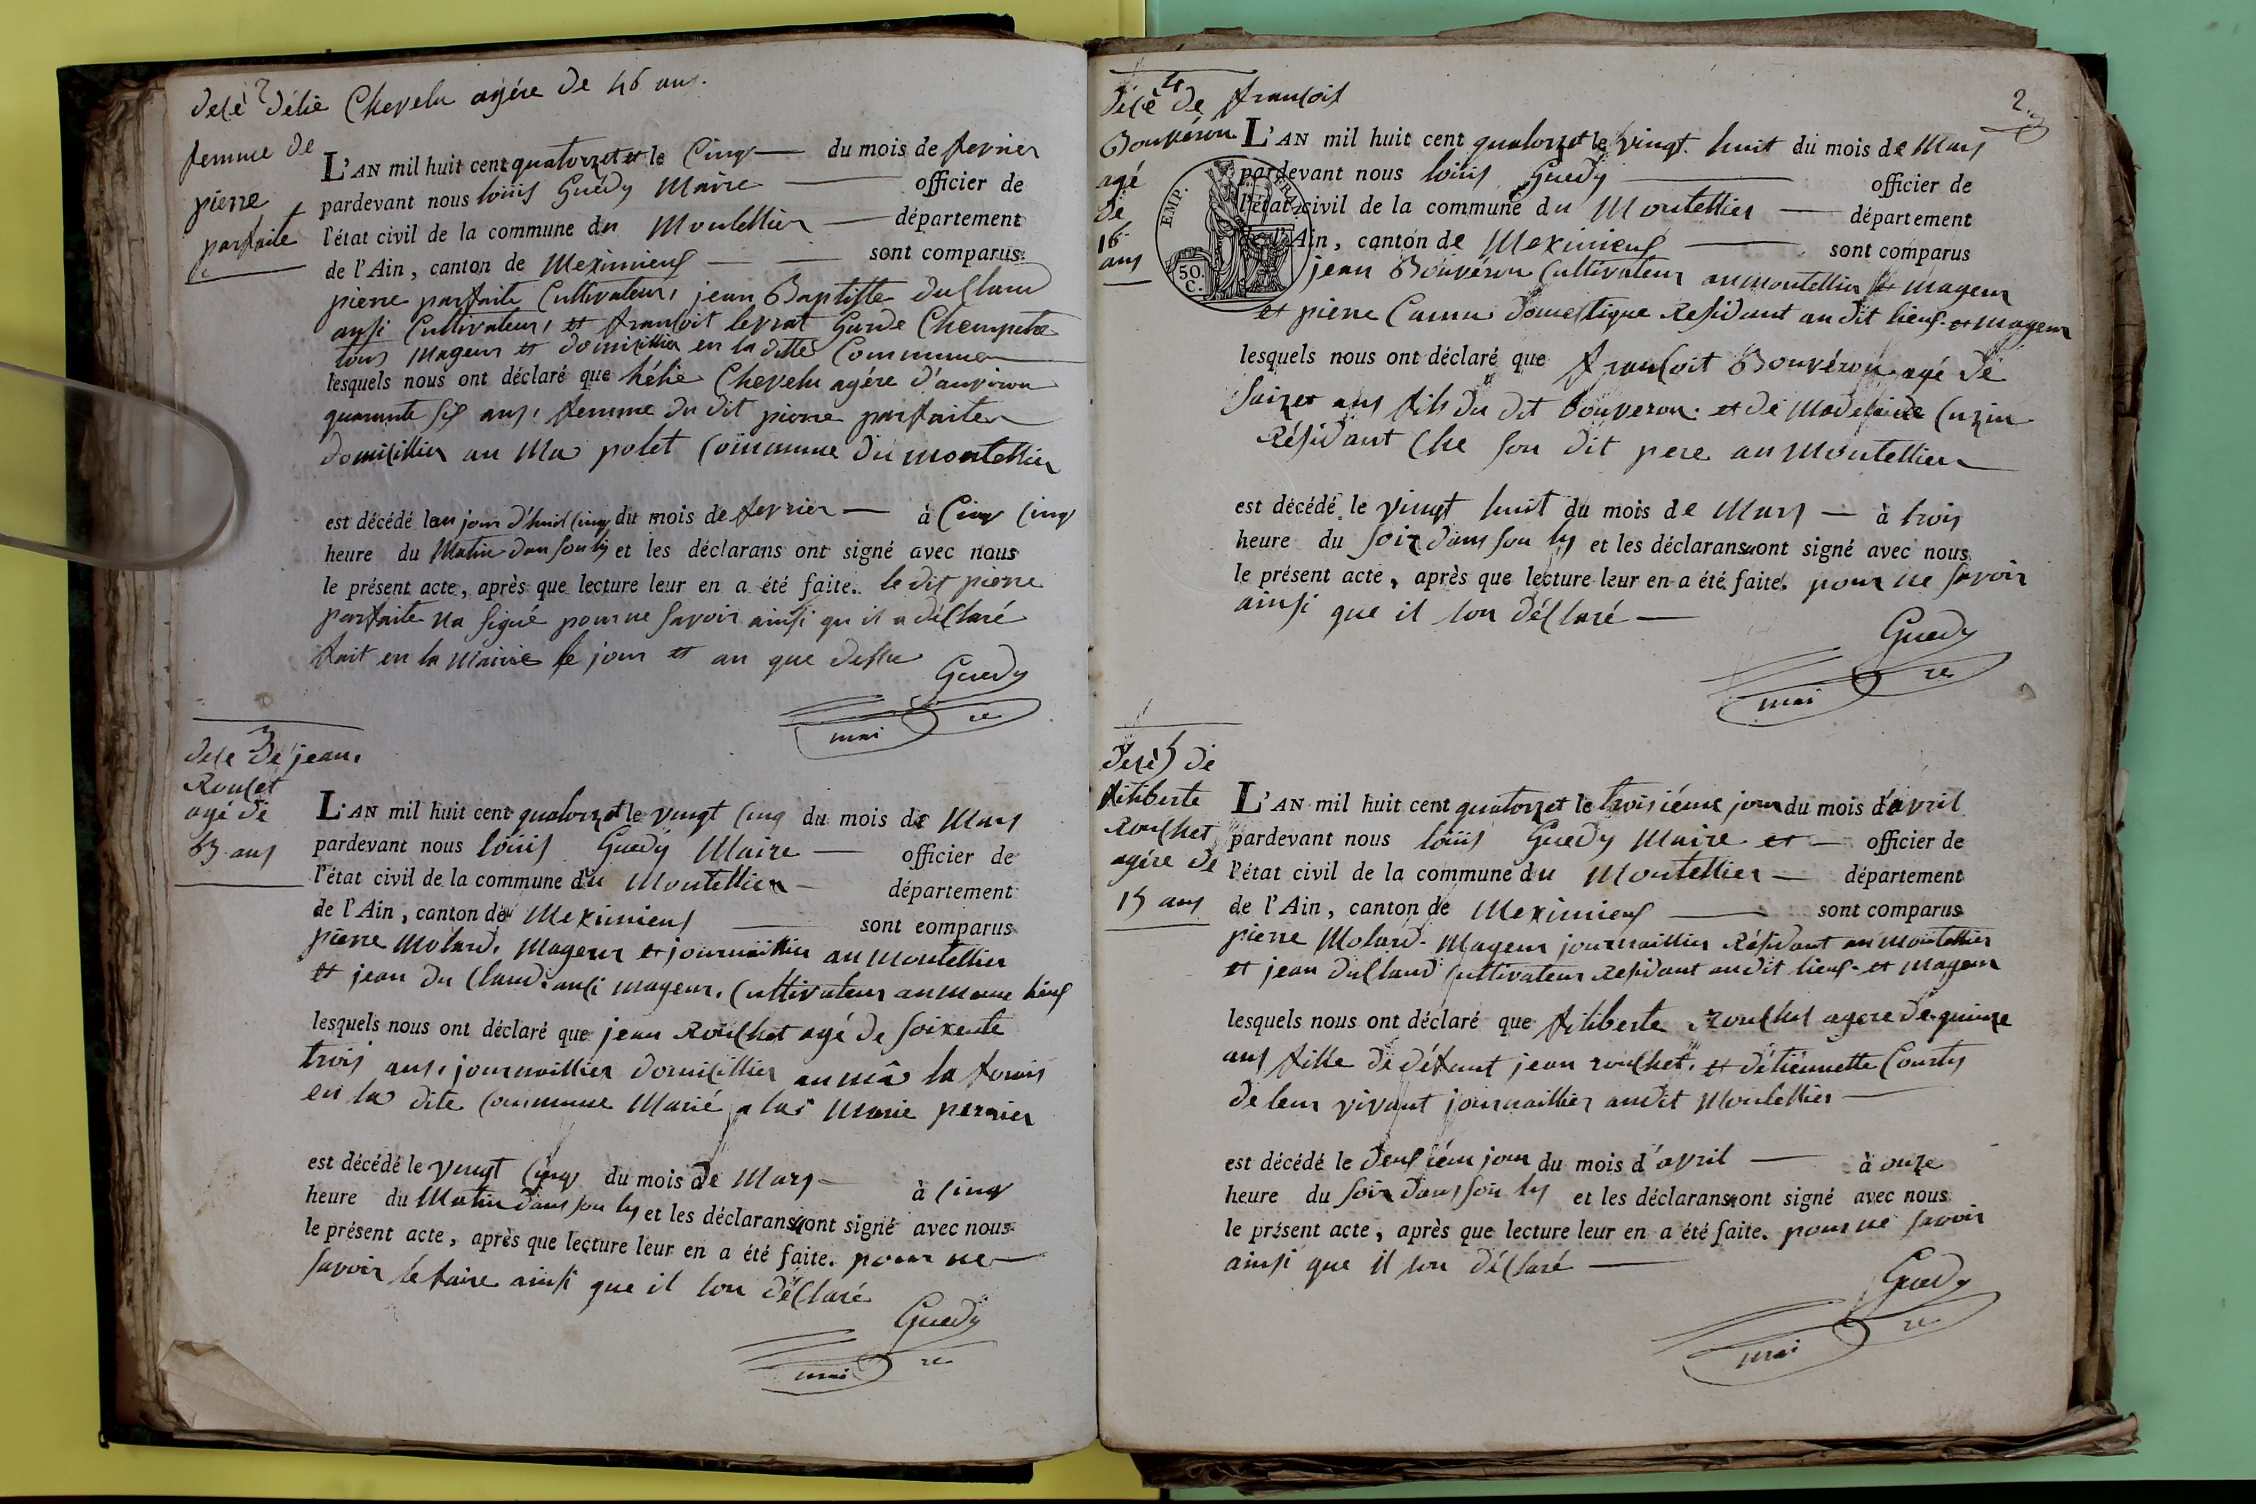 2
decé délie Chevelu agére de 46 ans.
femme de
pierre
parfaite
L'AN mil huit cent quatorzet et le Cinq du mois de fevrier
pardevant nous loüis Guedy Maire officier de
l'état civil de la commune du Montellier département
de l'Ain, canton de Meximieux sont comparus
pierre parfaite Cultivateur, jean Baptiste duCland
aussi Cultivateur, et francoit levrat Garde Chempetre
tous mageur et domicillier en la ditte Commune
lesquels nous ont déclaré que hélie Chevelu agére d'anviron
quarante six ans, femme du dit pierre parfaite
domicillier au Ma polet Commune du montellier
est décédé leau jour d'huit Cinq du mois de fevrier à Cinq Cinq
heure du Matin dan son ly et les déclarans ont signé avec nous
le présent acte, après que lecture leur en a été faite. le dit pierre
parfaite na signé pour ne savoir ainsi qu il a déClaré
fait en la Mairie le jour et an que dessu
Guedy
mai re
3
dece de jean,
Roulet
agé de
63 ans
L'AN mil huit cent quatorzet le vingt Cinq du mois de Mars
pardevant nous loüis Guedy Maire officier de
l'état civil de la commune du Montellier département
de l'Ain, canton de Meximieux sont comparus
pierre Molard, mageur et journaillier au Montellier
et jean du Cland, ausi mageur, Cultivateur au meme lieux
lesquels nous ont déclaré que jean RouChet agé de soixente
trois ans, journaillier domicillier au mâ la forais
en la dite Commune Marié a las Marie pernier
est décédé le vingt Cinq du mois de Mars à Cinq
heure du Matin dans son ly et les déclarans ont signé avec nous
le présent acte, après que lecture leur en a été faite. pour ne
savoir le faire ainsi que il lon déClaré
Guedy
mai re
2
4
decé de francois
Bouvéron
agé
de
16
ans
EMP. FRAN.
50.
C.
L'AN mil huit cent quatorzet le vingt huit du mois de Mars
pardevant nous loüis Guedy officier de
l'état civil de la commune du Montellier département
de l'Ain, canton de Meximieux sont comparus
jean Bouvéron Cultivateur au montellier mageur
et pierre Camu domestique Residant au dit lieux et mageur
lesquels nous ont déclaré que francoit Bouvéron agé de
saizet ans fils du dit bouveron et de Madelaine Cuzin
Résidant Che son dit pere au Montellier
est décédé le vingt huit du mois de Mars à trois
heure du soir dans son ly et les déclarans ont signé avec nous
le présent acte, après que lecture leur en a été faite. pour ne savoir
ainsi que il lon déClaré
Guedy
mai re
5
decé de
filiberte
RouChet
agére de
15 ans
L'AN mil huit cent quatorzet le troisiéme jour du mois d'avril
pardevant nous loüis Guedy Maire et officier de
l'état civil de la commune du Montellier département
de l'Ain, canton de Meximieux sont comparus
pierre Molard. Mageur journaillier Résidant au montellier
et jean duCland Cultivateur Residant au dit lieux et mageur
lesquels nous ont déclaré que filiberte RouChet agere de quinze
ans fille de défaut jean rouChet, et détiennette Courty
de leur vivant journaillier au dit Montellier
est décédé le deuxiém jour du mois d'avril à onze
heure du soir dans son ly et les déclarans ont signé avec nous
le présent acte, après que lecture leur en a été faite. pour ne savoir
ainsi que il lon déClaré
Guedy
mai re